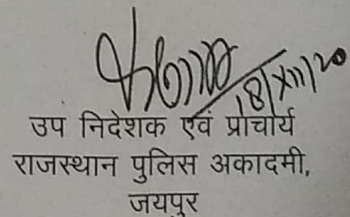 18/XII/20
उप निदेशक एवं प्राचार्य
राजस्थान पुलिस अकादमी,
जयपुर